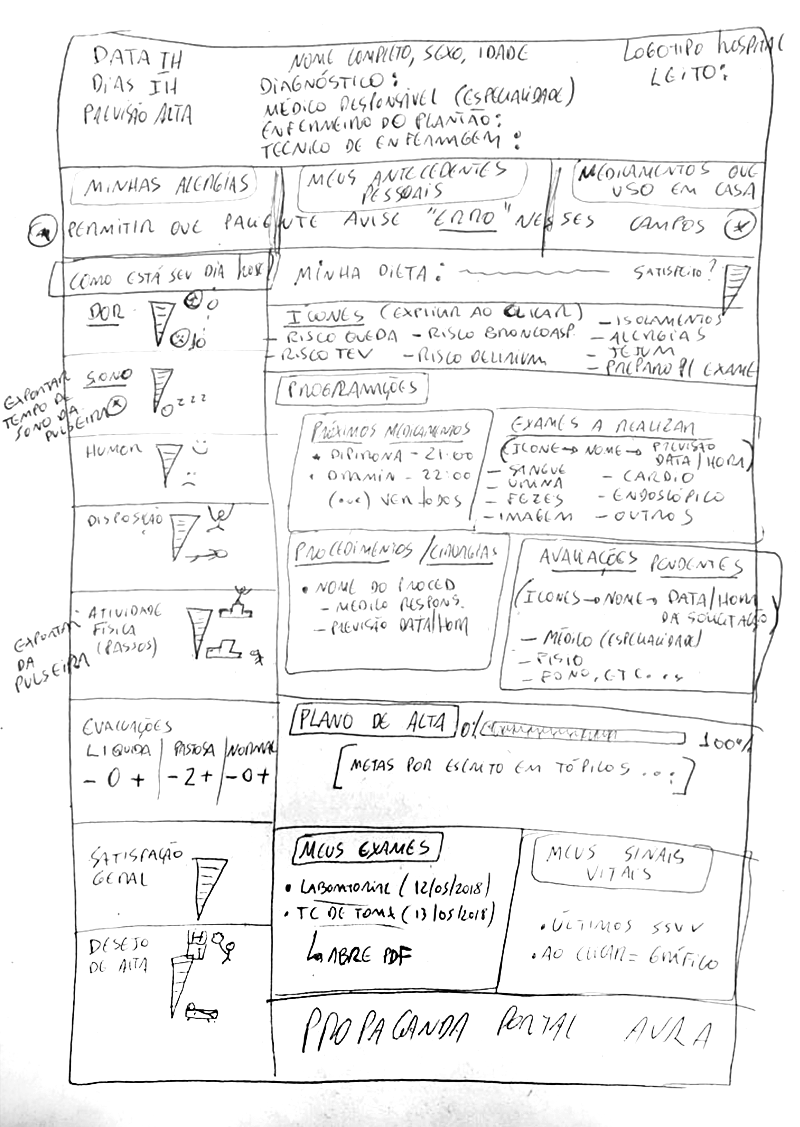 DATA IH
DIAS IH
PREVISÃO ALTA
NOME COMPLETO, SEXO, IDADE
DIAGNÓSTICO:
MÉDICO RESPONSÁVEL (ESPECIALIDADE)
ENFERMEIRO DO PLANTÃO:
TÉCNICO DE ENFERMAGEM:
LOGOTIPO HOSPITAL
LEITO:
MINHAS ALERGIAS
MEUS ANTECEDENTES
PESSOAIS
MEDICAMENTOS QUE
USO EM CASA
* PERMITIR QUE PACIENTE AVISE "ERRO" NESSES CAMPOS *
COMO ESTÁ SEU DIA HOJE?
MINHA DIETA:
SATISFEITO?
DOR
0
10
EXPORTAR
TEMPO DE
SONO DA
PULSEIRA *
SONO
zzz
HUMOR
DISPOSIÇÃO
EXPORTAR
DA
PULSEIRA
ATIVIDADE
FÍSICA
(PASSOS)
EVACUAÇÕES
LIQUIDA | PASTOSA | NORMAL
- 0 + | - 2 + | - 0 +
SATISFAÇÃO
GERAL
DESEJO
DE ALTA
H
ÍCONES (EXPLICAR AO CLICAR)
- RISCO QUEDA - RISCO BRONCOASP.
- RISCO TEV - RISCO DELIRIUM
- ISOLAMENTOS
- ALERGIAS
- JEJUM
- PREPARO P/ EXAME
PROGRAMAÇÕES
PRÓXIMOS MEDICAMENTOS
• DIPIRONA - 21:00
• DRAMIN - 22:00
(ou) VER TODOS
EXAMES A REALIZAR
(ÍCONE → NOME → PREVISÃO
DATA/HORA)
- SANGUE
- URINA
- FEZES
- IMAGEM
- CARDIO
- ENDOSCÓPICO
- OUTROS
PROCEDIMENTOS / CIRURGIAS
• NOME DO PROCED
- MÉDICO RESPONS.
- PREVISÃO DATA/HORA
AVALIAÇÕES PENDENTES
(ÍCONES → NOME → DATA/HORA
DA SOLICITAÇÃO
- MÉDICO (ESPECIALIDADE)
- FISIO
- FONO, ETC...
PLANO DE ALTA 0% 100%
[METAS POR ESCRITO EM TÓPICOS ...]
MEUS EXAMES
• LABORATORIAL (12/05/2018)
• TC DE TORAX (13/05/2018)
↳ ABRE PDF
MEUS SINAIS
VITAIS
• ÚLTIMOS SSVV
• AO CLICAR = GRÁFICO
PROPAGANDA PORTAL AURA